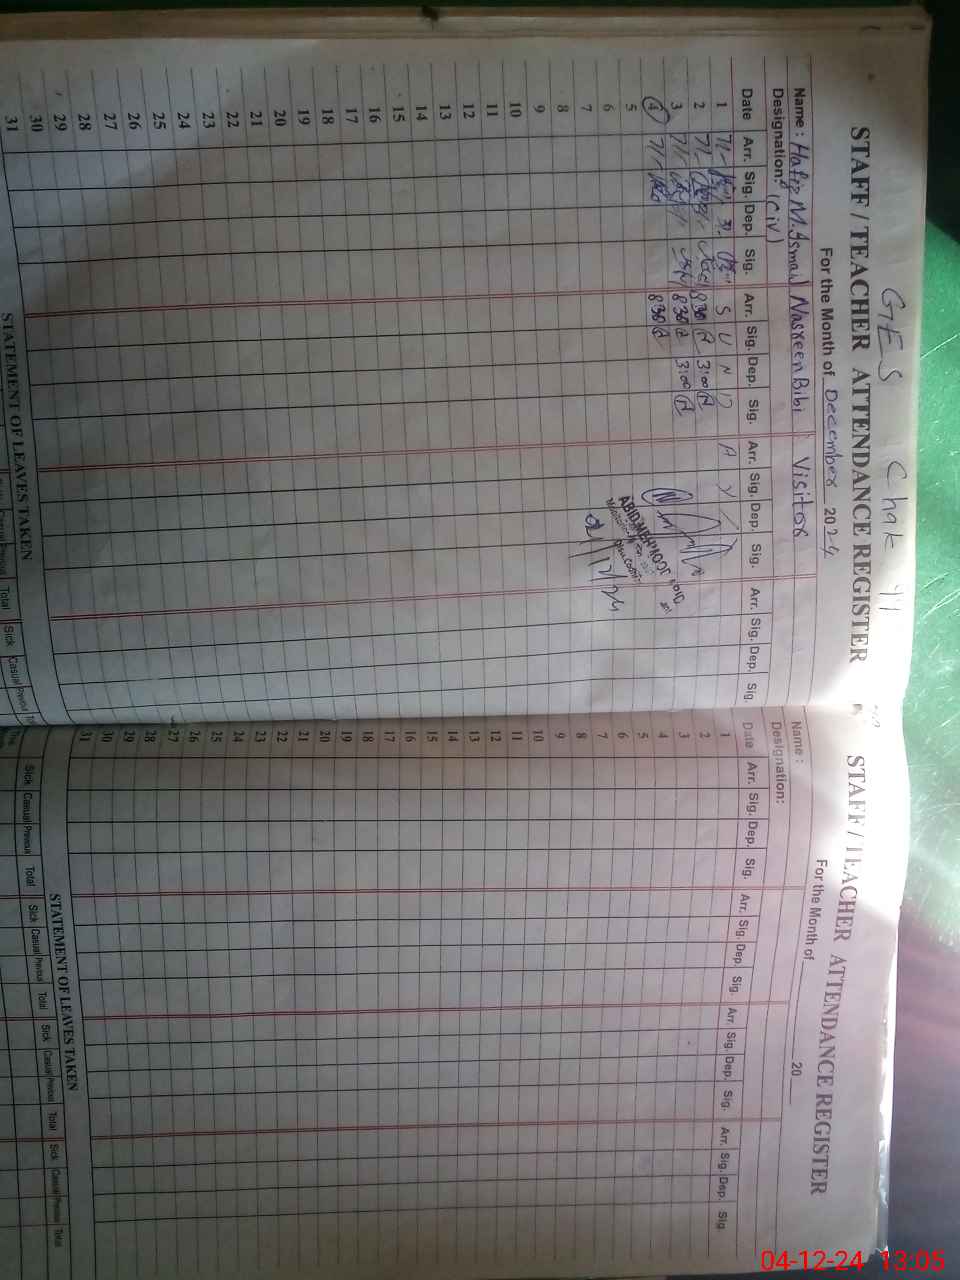 GES Chak 41
STAFF / TEACHER ATTENDANCE REGISTER
For the Month of December 2024
Name : Hafiz M. Ismail Nasreen Bibi Visitor
Designation: (civ)
Date Arr. Sig. Dep. Sig. Arr. Sig. Dep. Sig. Arr. Sig. Dep. Sig. Arr. Sig. Dep. Sig.
1 7/- S U N D A Y
2 7/- 8:30 3:00
3 7/- 8:30 3:00
4 7/- 8:30
5
6
7
8
9
10
11
12
13
14
15
16
17
18
19
20
21
22
23
24
25
26
27
28
29
30
31
ABID MEHMOOD
04/12/24
STATEMENT OF LEAVES TAKEN
Casual Previous Total Sick Casual Previous
STAFF / TEACHER ATTENDANCE REGISTER
For the Month of 20
Name :
Designation:
Date Arr. Sig. Dep. Sig. Arr. Sig. Dep. Sig. Arr. Sig. Dep. Sig. Arr. Sig. Dep. Sig.
1
2
3
4
5
6
7
8
9
10
11
12
13
14
15
16
17
18
19
20
21
22
23
24
25
26
27
28
29
30
31
STATEMENT OF LEAVES TAKEN
Sick Casual Previous Total Sick Casual Previous Total Sick Casual Previous Total Sick Casual Previous Total
04-12-24 13:05